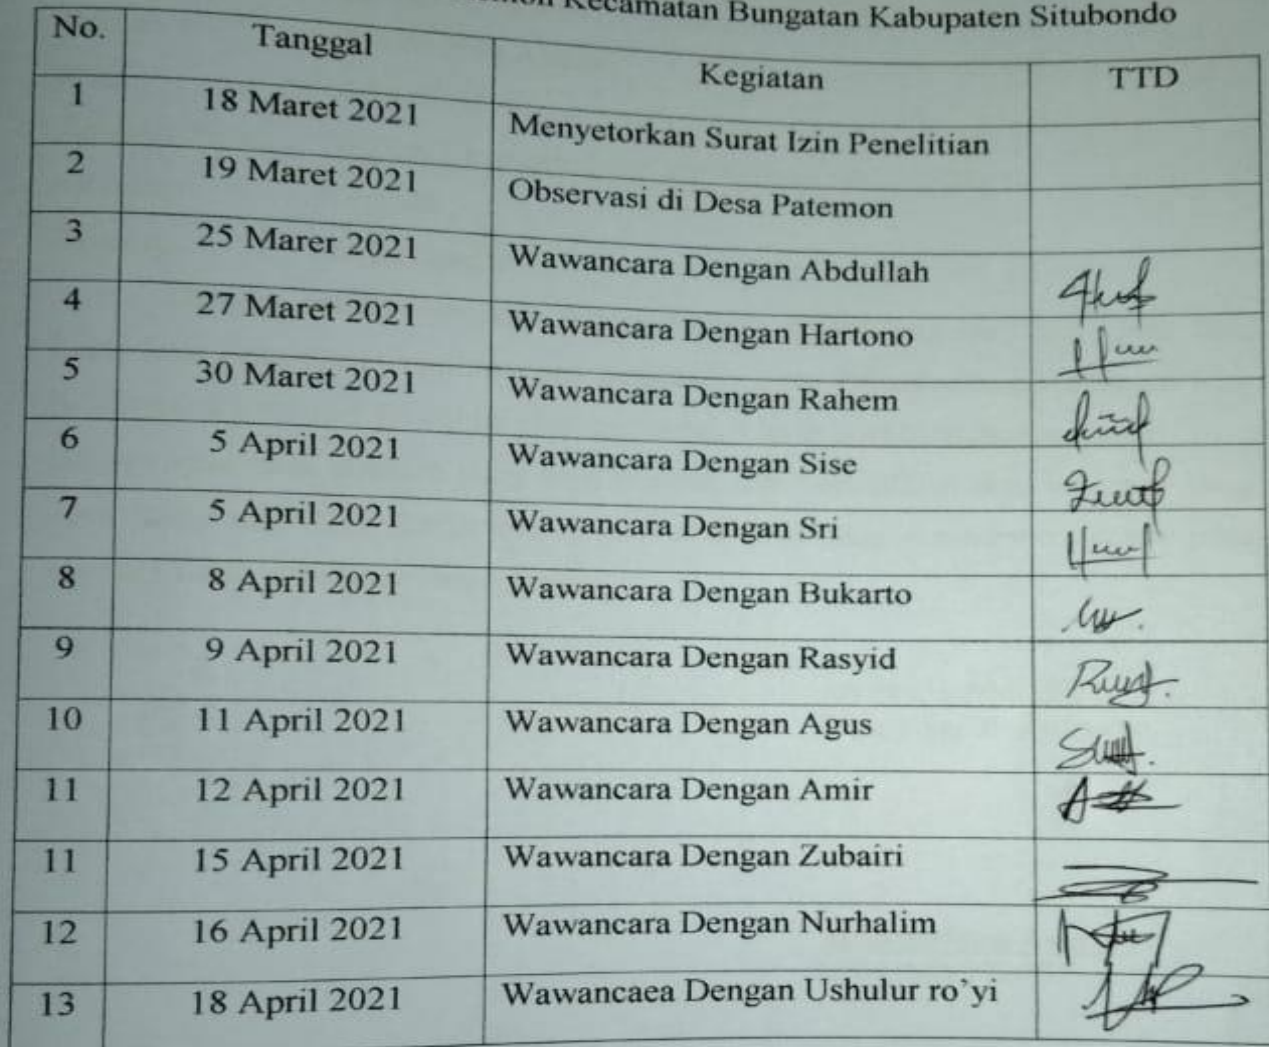 Kecamatan Bungatan Kabupaten Situbondo
No. Tanggal Kegiatan TTD
1 18 Maret 2021 Menyetorkan Surat Izin Penelitian
2 19 Maret 2021 Observasi di Desa Patemon
3 25 Marer 2021 Wawancara Dengan Abdullah
4 27 Maret 2021 Wawancara Dengan Hartono
5 30 Maret 2021 Wawancara Dengan Rahem
6 5 April 2021 Wawancara Dengan Sise
7 5 April 2021 Wawancara Dengan Sri
8 8 April 2021 Wawancara Dengan Bukarto
9 9 April 2021 Wawancara Dengan Rasyid
10 11 April 2021 Wawancara Dengan Agus
11 12 April 2021 Wawancara Dengan Amir
11 15 April 2021 Wawancara Dengan Zubairi
12 16 April 2021 Wawancara Dengan Nurhalim
13 18 April 2021 Wawancaea Dengan Ushulur ro’yi